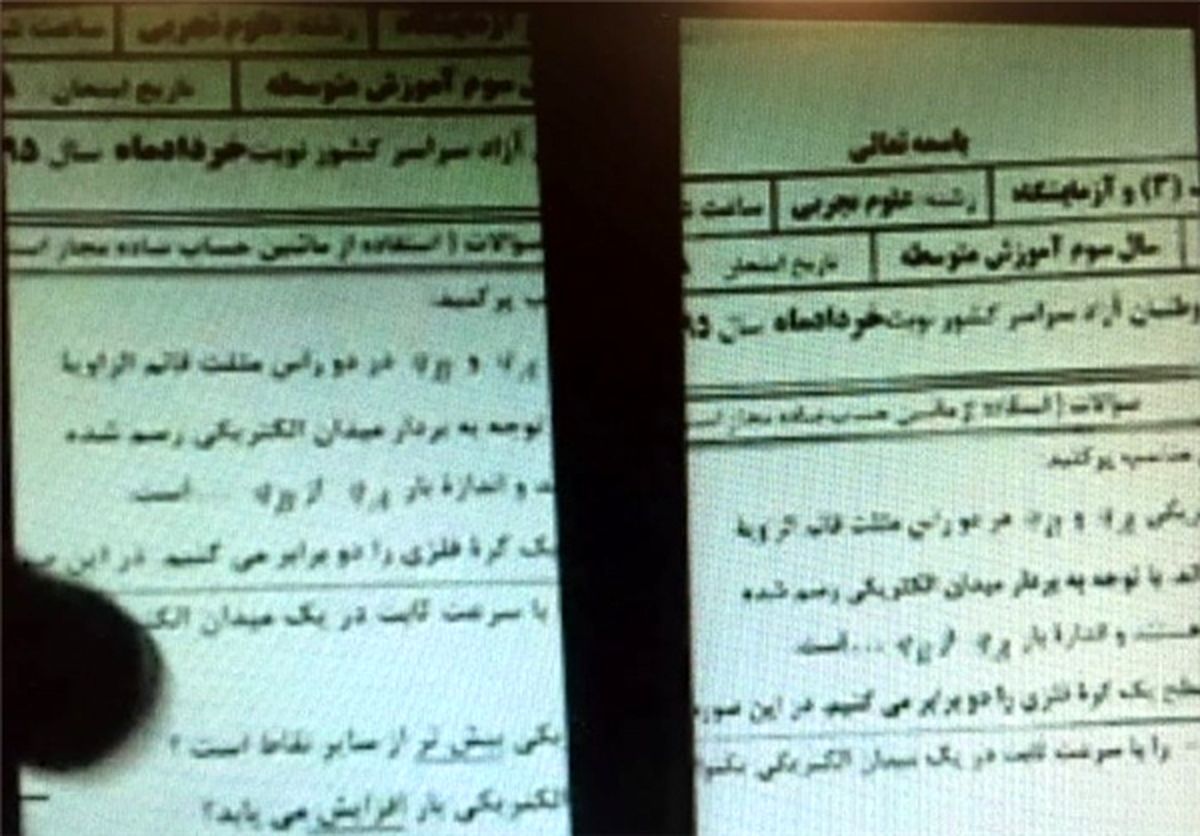 باسمه تعالی
(۳) و آزمایشگاه رشته: علوم تجربی ساعت
سال سوم آموزش متوسطه تاریخ امتحان
آزاد سراسر کشور نوبت خرداد ماه سال ۹۵
سوالات ( استفاده از ماشین حساب ساده مجاز
مناسب پر کنید.
q_A و q_B در دو راس مثلث قائم الزاویه
با توجه به بردار میدان الکتریکی رسم شده
هستند و اندازهٔ بار q_A از q_B ... است.
یک کرهٔ فلزی را دو برابر می کنیم. در این
را با سرعت ثابت در یک میدان الکتریکی
آزمایشگاه رشته: علوم تجربی ساعت
سوم آموزش متوسطه تاریخ امتحان
آزاد سراسر کشور نوبت خرداد ماه سال ۹۵
سوالات ( استفاده از ماشین حساب ساده مجاز
پر کنید.
q_A و q_B در دو راس مثلث قائم الزاویه
توجه به بردار میدان الکتریکی رسم شده
و اندازهٔ بار q_A از q_B ... است.
یک کرهٔ فلزی را دو برابر می کنیم. در این
با سرعت ثابت در یک میدان
بیش تر از سایر نقاط است ؟
الکتریکی بار افزایش می یابد؟